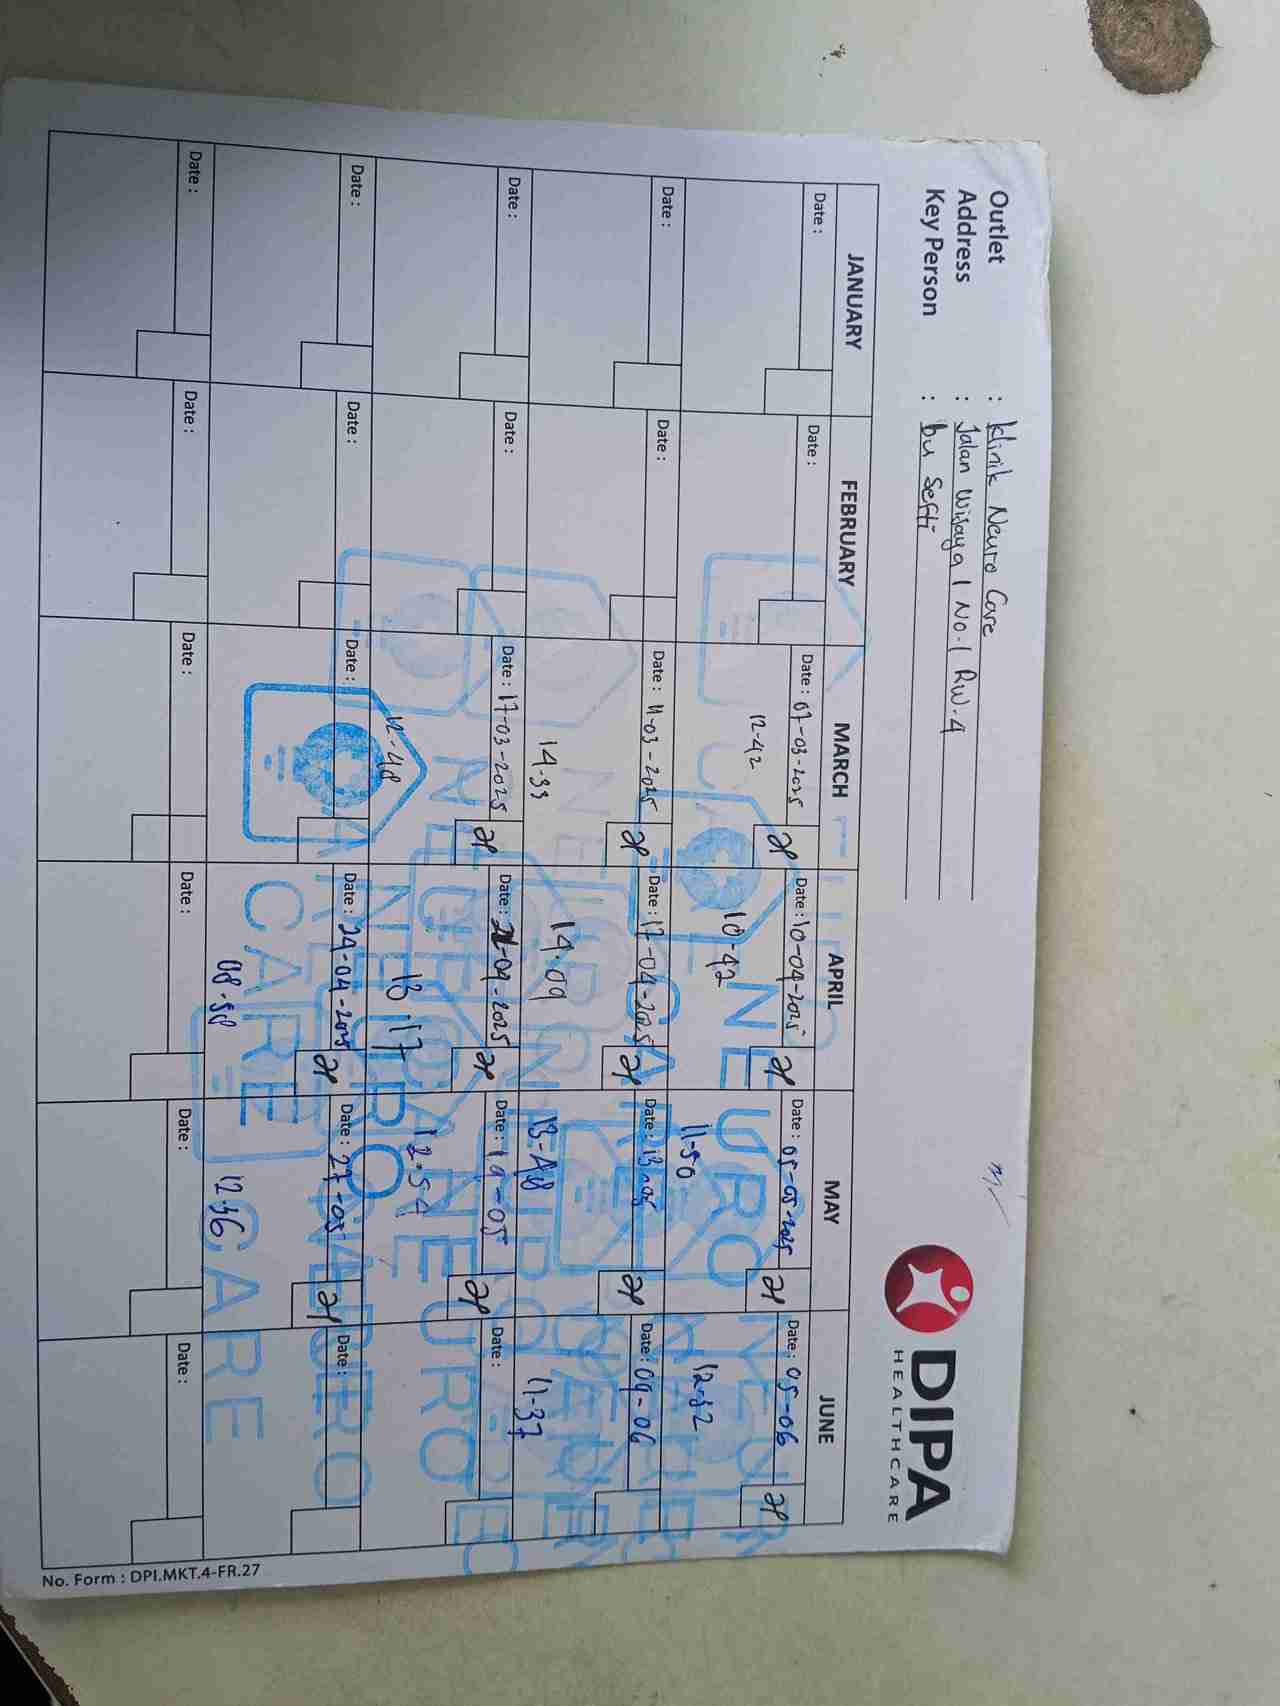 Outlet : Klinik Neuro Care
Address : Jalan Wijaya I No.1 RW.4
Key Person : bu Sefti
DIPA
HEALTHCARE
JANUARY FEBRUARY MARCH APRIL MAY JUNE
Date : Date : Date : 07-03-2025 Date : 10-04-2025 Date : 05-05-2025 Date : 05-06
12-42 10-42 11-50 12-52
Date : Date : Date : 11-03-2025 Date : 17-04-2025 Date : 13-05 Date : 09-06
14-33 14.09 13-48 11-37
Date : Date : Date : 17-03-2025 Date : 21-04-2025 Date : 19-05 Date :
12-48 13.17 12.54
Date : Date : Date : Date : 24-04-2025 Date : 27-05 Date :
08.58 12.36
Date : Date : Date : Date : Date : Date :
NEURO CARE
NEURO CARE
NEURO CARE
NEURO CARE
No. Form : DPI.MKT.4-FR.27